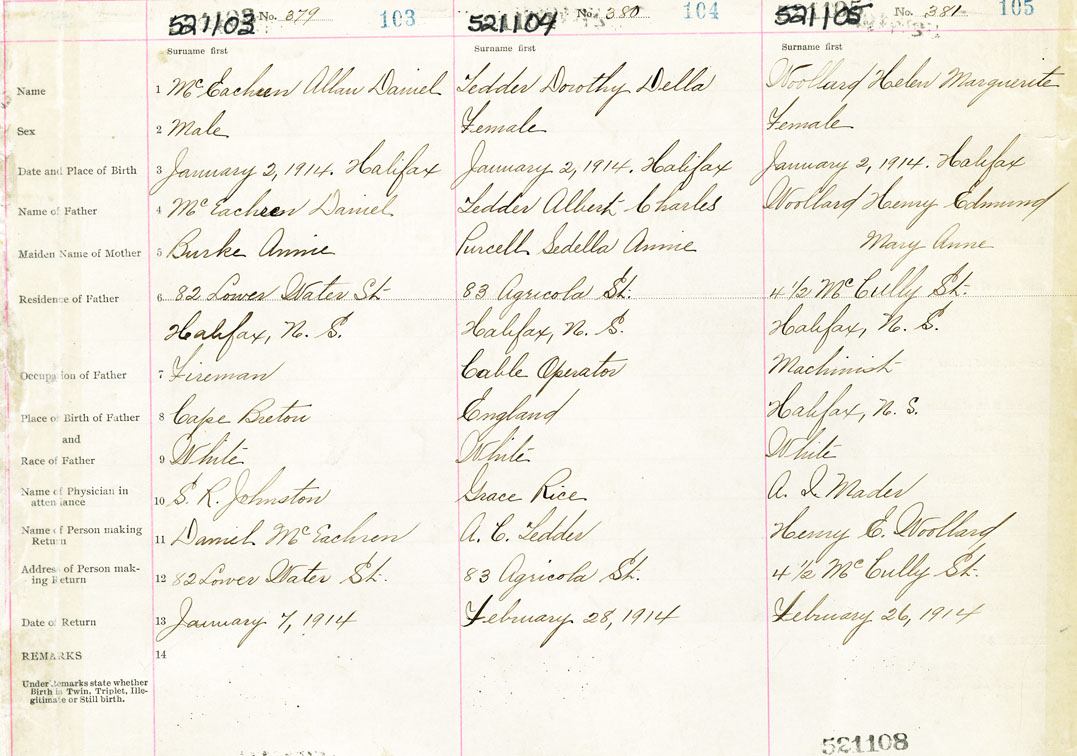 521103 No. 379 103 521104 No. 380 104 521105 No. 381 105
Surname first Surname first Surname first
Name 1 McEachren Allan Daniel Tedder Dorothy Della Woollard Helen Marguerite
Sex 2 Male Female Female
Date and Place of Birth 3 January 2, 1914. Halifax January 2, 1914. Halifax January 2, 1914. Halifax
Name of Father 4 McEachren Daniel Tedder Albert Charles Woollard Henry Edmund
Maiden Name of Mother 5 Burke Annie Purcell Sedella Annie Mary Anne
Residence of Father 6 82 Lower Water St. 83 Agricola St. 4 1/2 McCully St.
Halifax, N. S. Halifax, N. S. Halifax, N. S.
Occupation of Father 7 Fireman Cable Operator Machinist
Place of Birth of Father 8 Cape Breton England Halifax, N. S.
and
Race of Father 9 White White White
Name of Physician in
attendance 10 S. R. Johnston Grace Rice A. I. Mader
Name of Person making
Return 11 Daniel McEachren A. C. Tedder Henry E. Woollard
Address of Person mak-
ing Return 12 82 Lower Water St. 83 Agricola St. 4 1/2 McCully St.
Date of Return 13 January 7, 1914 February 28, 1914 February 26, 1914
REMARKS 14
Under Remarks state whether
Birth is Twin, Triplet, Ille-
gitimate or Still birth.
521108